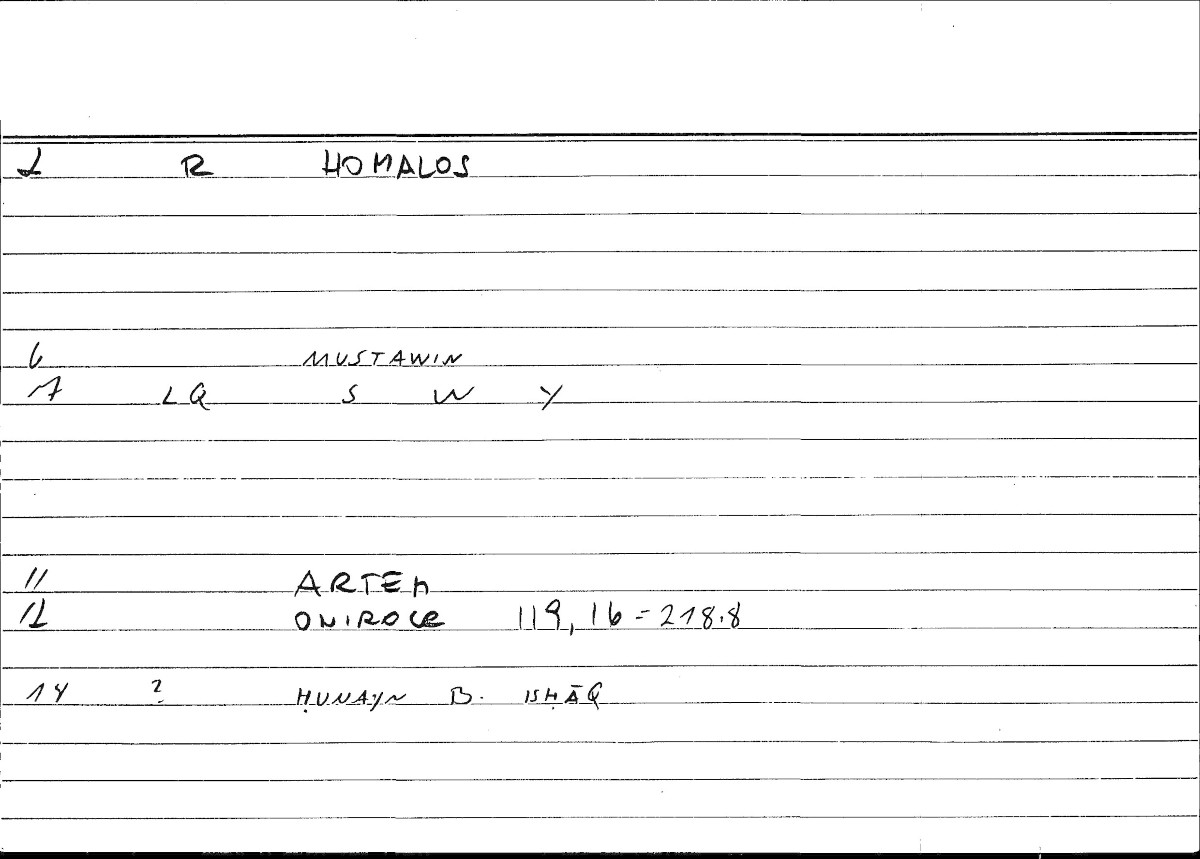 1 R HOMALOS
6 MUSTAWIN
7 LQ S W Y
11 ARTEM
12 ONIROCR 119, 16 = 218.8
14 ? ḤUNAYN B. ISḤĀQ